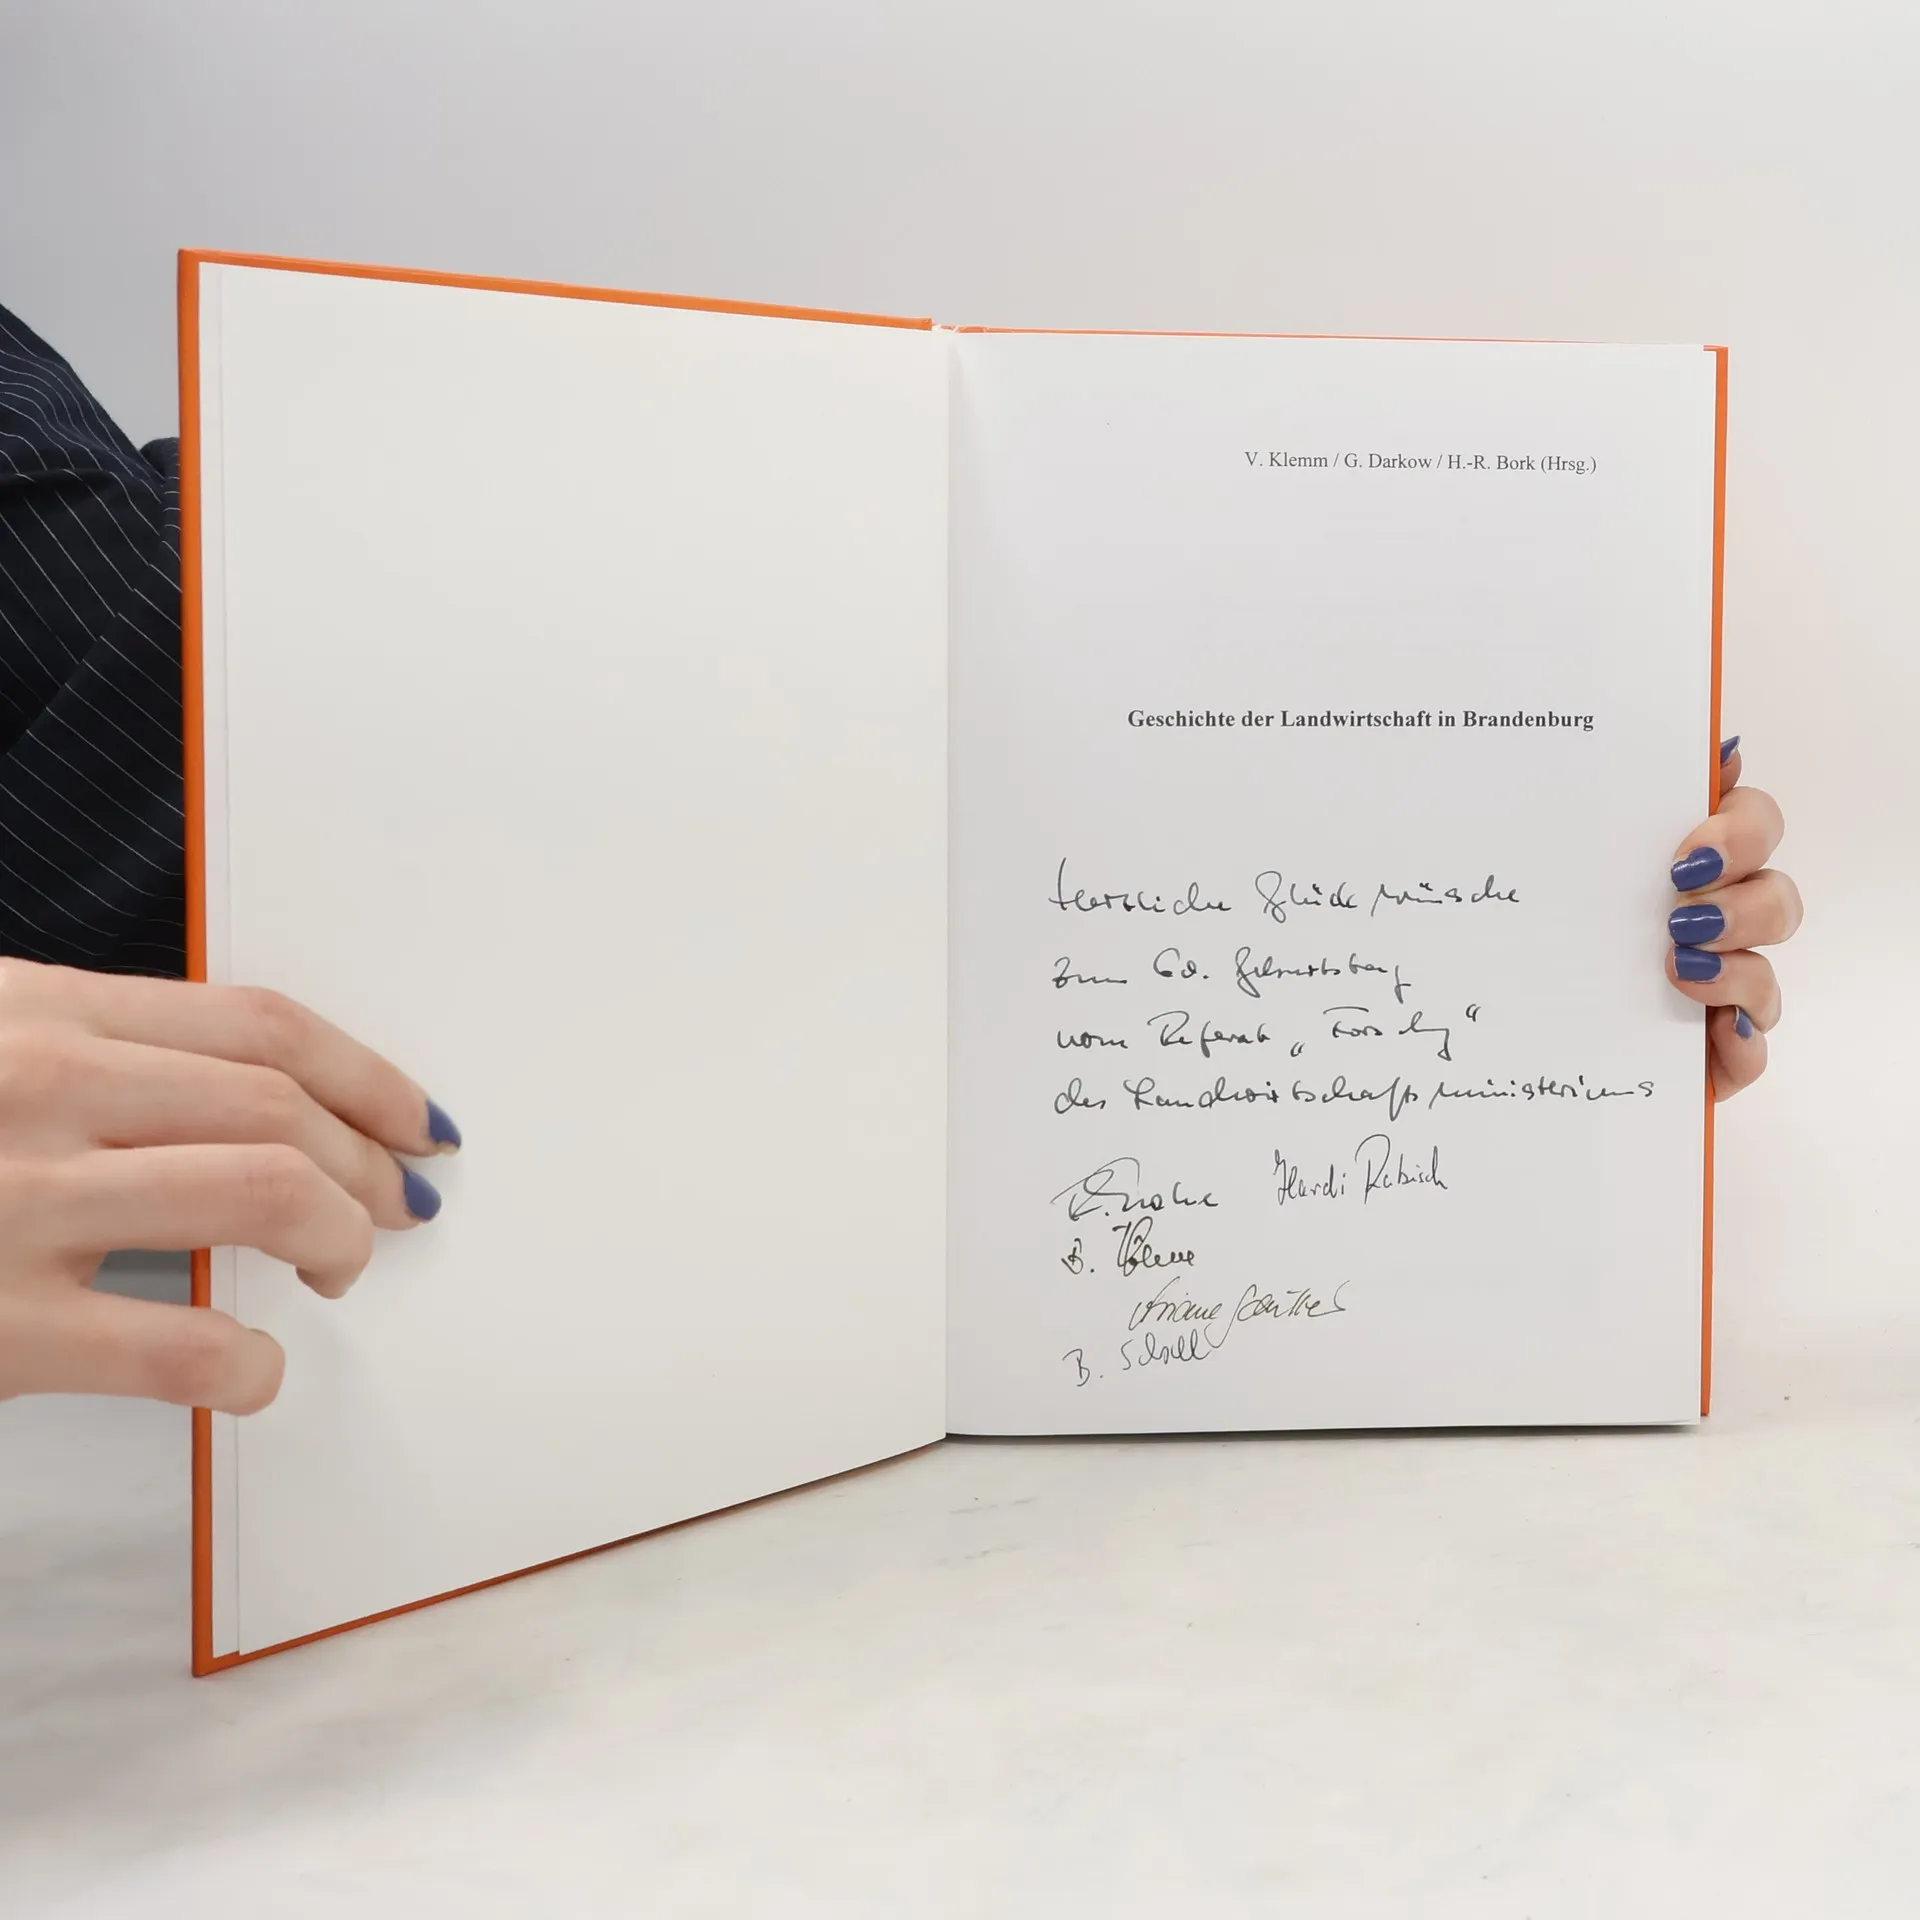 V. Klemm / G. Darkow / H.-R. Bork (Hrsg.)
Geschichte der Landwirtschaft in Brandenburg
Herzliche Glückwünsche
zum 60. Geburtstag
vom Referat „Forschg“
des Landwirtschaftsministeriums
Hardi Rabisch
B.
Ariane Günther
B. Scholl